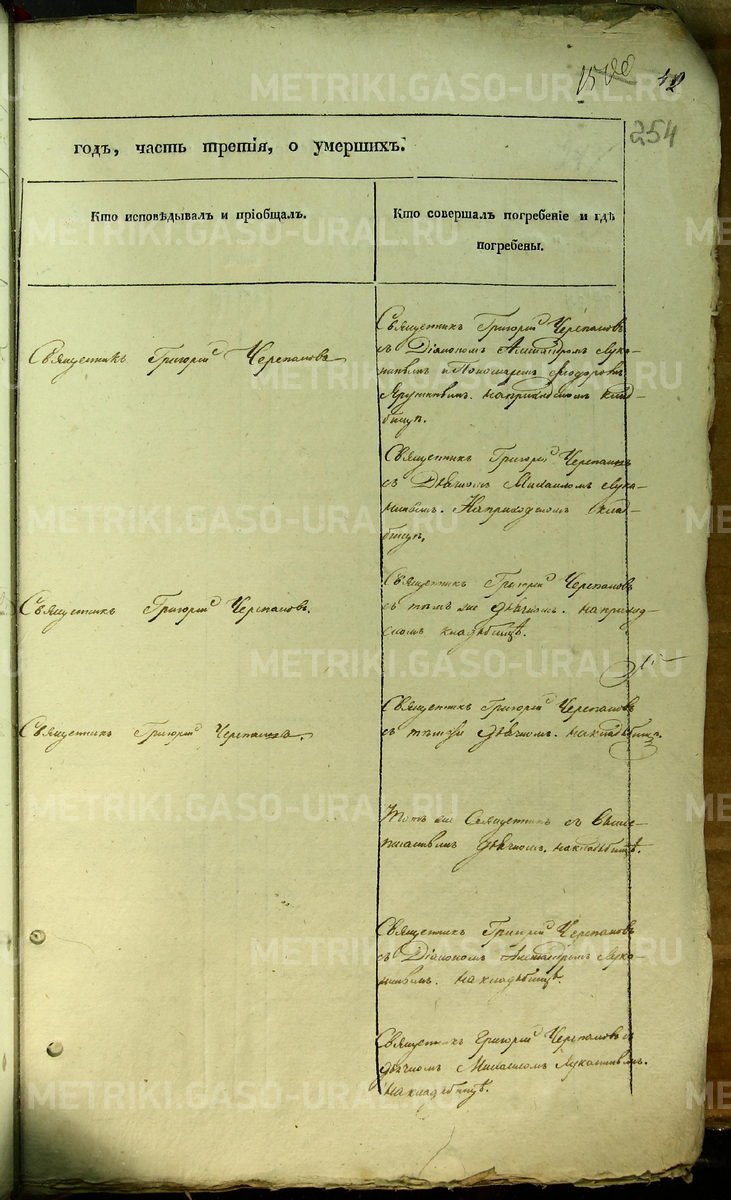 42
254
годъ, часть третія, о умершихъ.
Кто исповѣдывалъ и пріобщалъ.
Кто совершалъ погребеніе и гдѣ
погребены.
Священникъ Григорий Черепановъ
Священникъ Григорий Черепановъ
съ Діакономъ Александромъ Лука-
нинымъ и Пономаремъ Феодоромъ
на приходскомъ клад-
бищѣ.
Священникъ Григорий Черепановъ
съ Дьячкомъ Михаиломъ Лука-
нинымъ. На приходскомъ клад-
бищѣ.
Священникъ Григорий Черепановъ.
Священникъ Григорий Черепановъ
съ тѣмъ же дьячкомъ. на приход-
скомъ кладьбищѣ.
Священникъ Григорий Черепановъ.
Священникъ Григорий Черепановъ
съ тѣмже дьячкомъ. на кладьбищѣ.
Тотъ же Священникъ съ выше-
писаннымъ дьячкомъ. на кладьбищѣ.
Священникъ Григорий Черепановъ
съ Діакономъ Александромъ Лука-
нинымъ. на кладьбищѣ.
Священникъ Григорий Черепановъ съ
дьячкомъ Михаиломъ Луканинымъ.
на кладьбищѣ.
METRIKI.GASO-URAL.RU